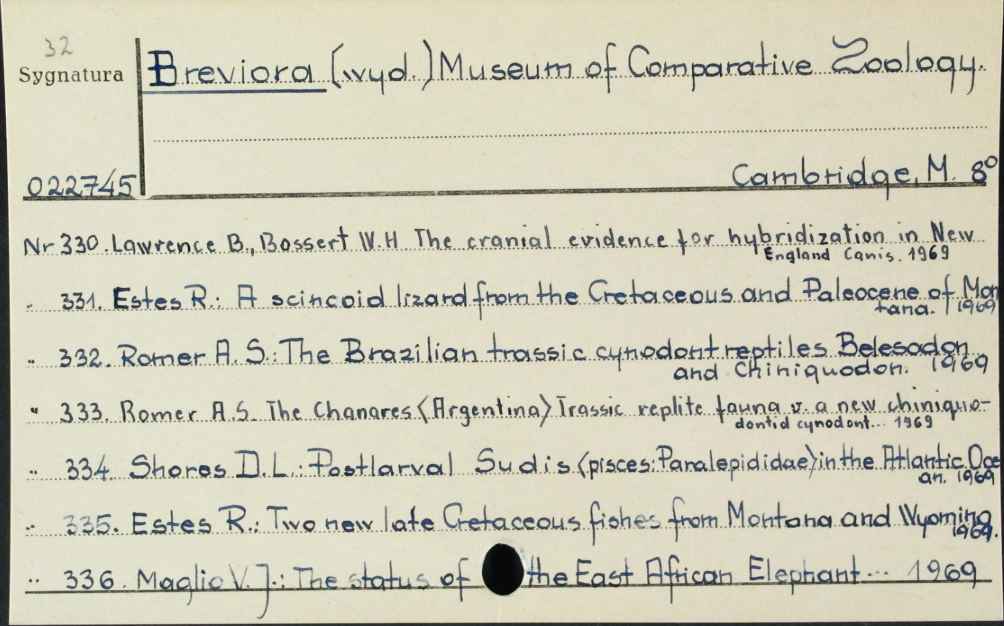 32
Sygnatura
Breviora (wyd.) Museum of Comparative Zoology.
022745
Cambridge, M. 8º
Nr 330. Lawrence B., Bossert W.H The cranial evidence for hybridization in New
England Canis. 1969
" 331. Estes R.: A scincoid lizard from the Cretaceous and Paleocene of Mon
tana. 1969
" 332. Romer A. S.: The Brazilian trassic cynodont reptiles Belesodon
and Chiniquodon. 1969
" 333. Romer A.S. The Chanares (Argentina) Trassic replite fauna v. a new chiniquo-
dontid cynodont... 1969
" 334. Shores D.L.: Postlarval Sudis (pisces: Paralepididae) in the Atlantic Oce
an. 1969
" 335. Estes R.: Two new late Cretaceous fishes from Montana and Wyoming
1969.
" 336. Maglio V. J.: The status of the East African Elephant... 1969